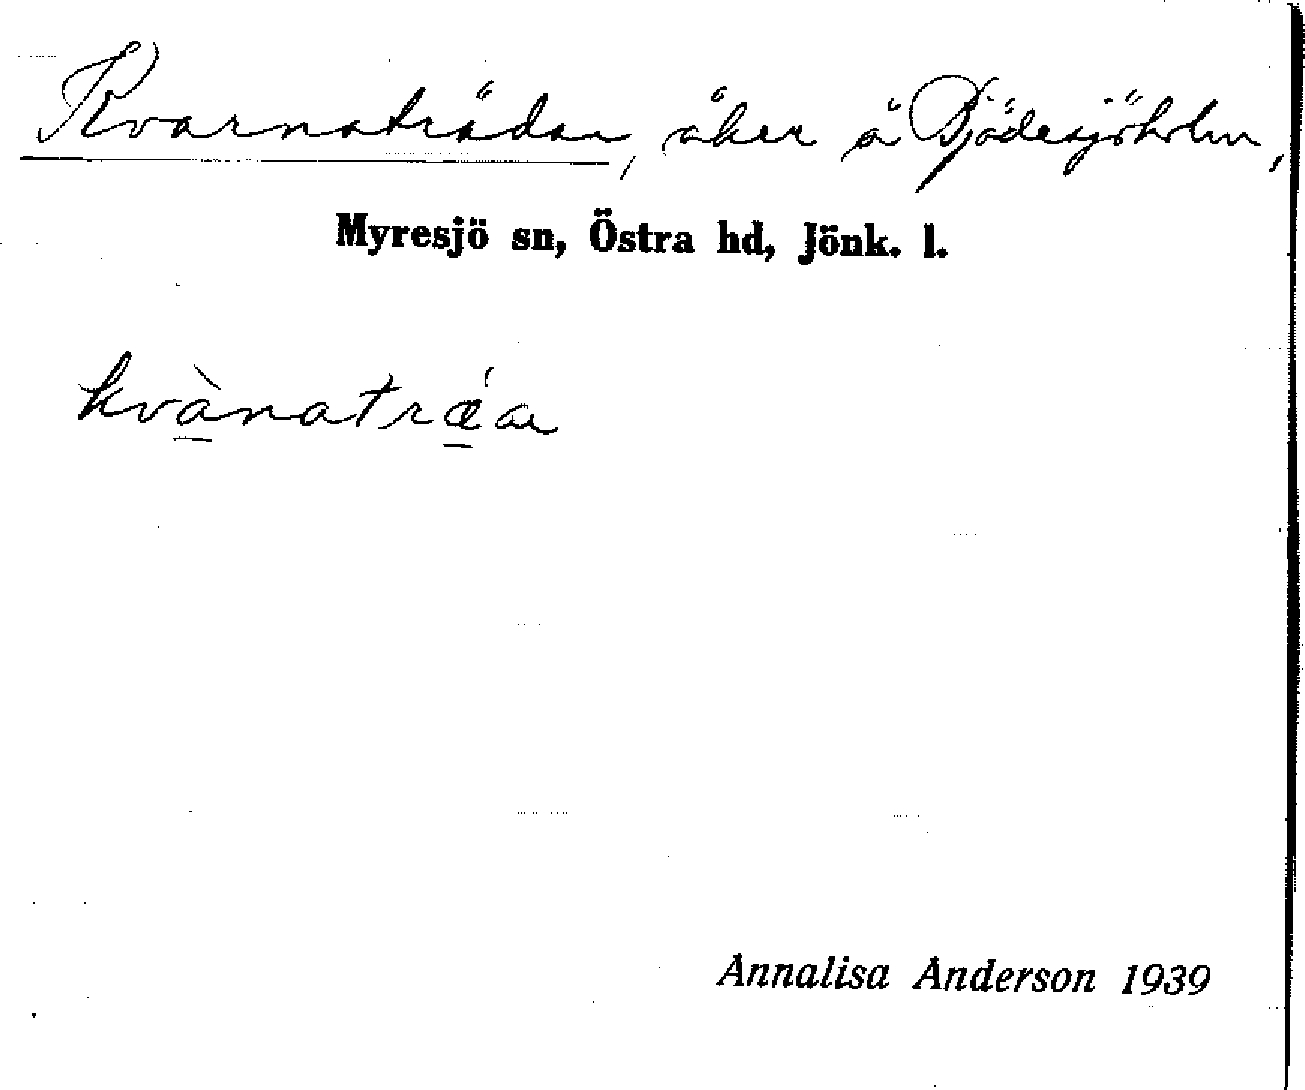 Kvarnaträdan, åker å Bjädesjöholm,
Myresjö sn, Östra hd, Jönk. l.
kvànatrǽa
Annalisa Anderson 1939